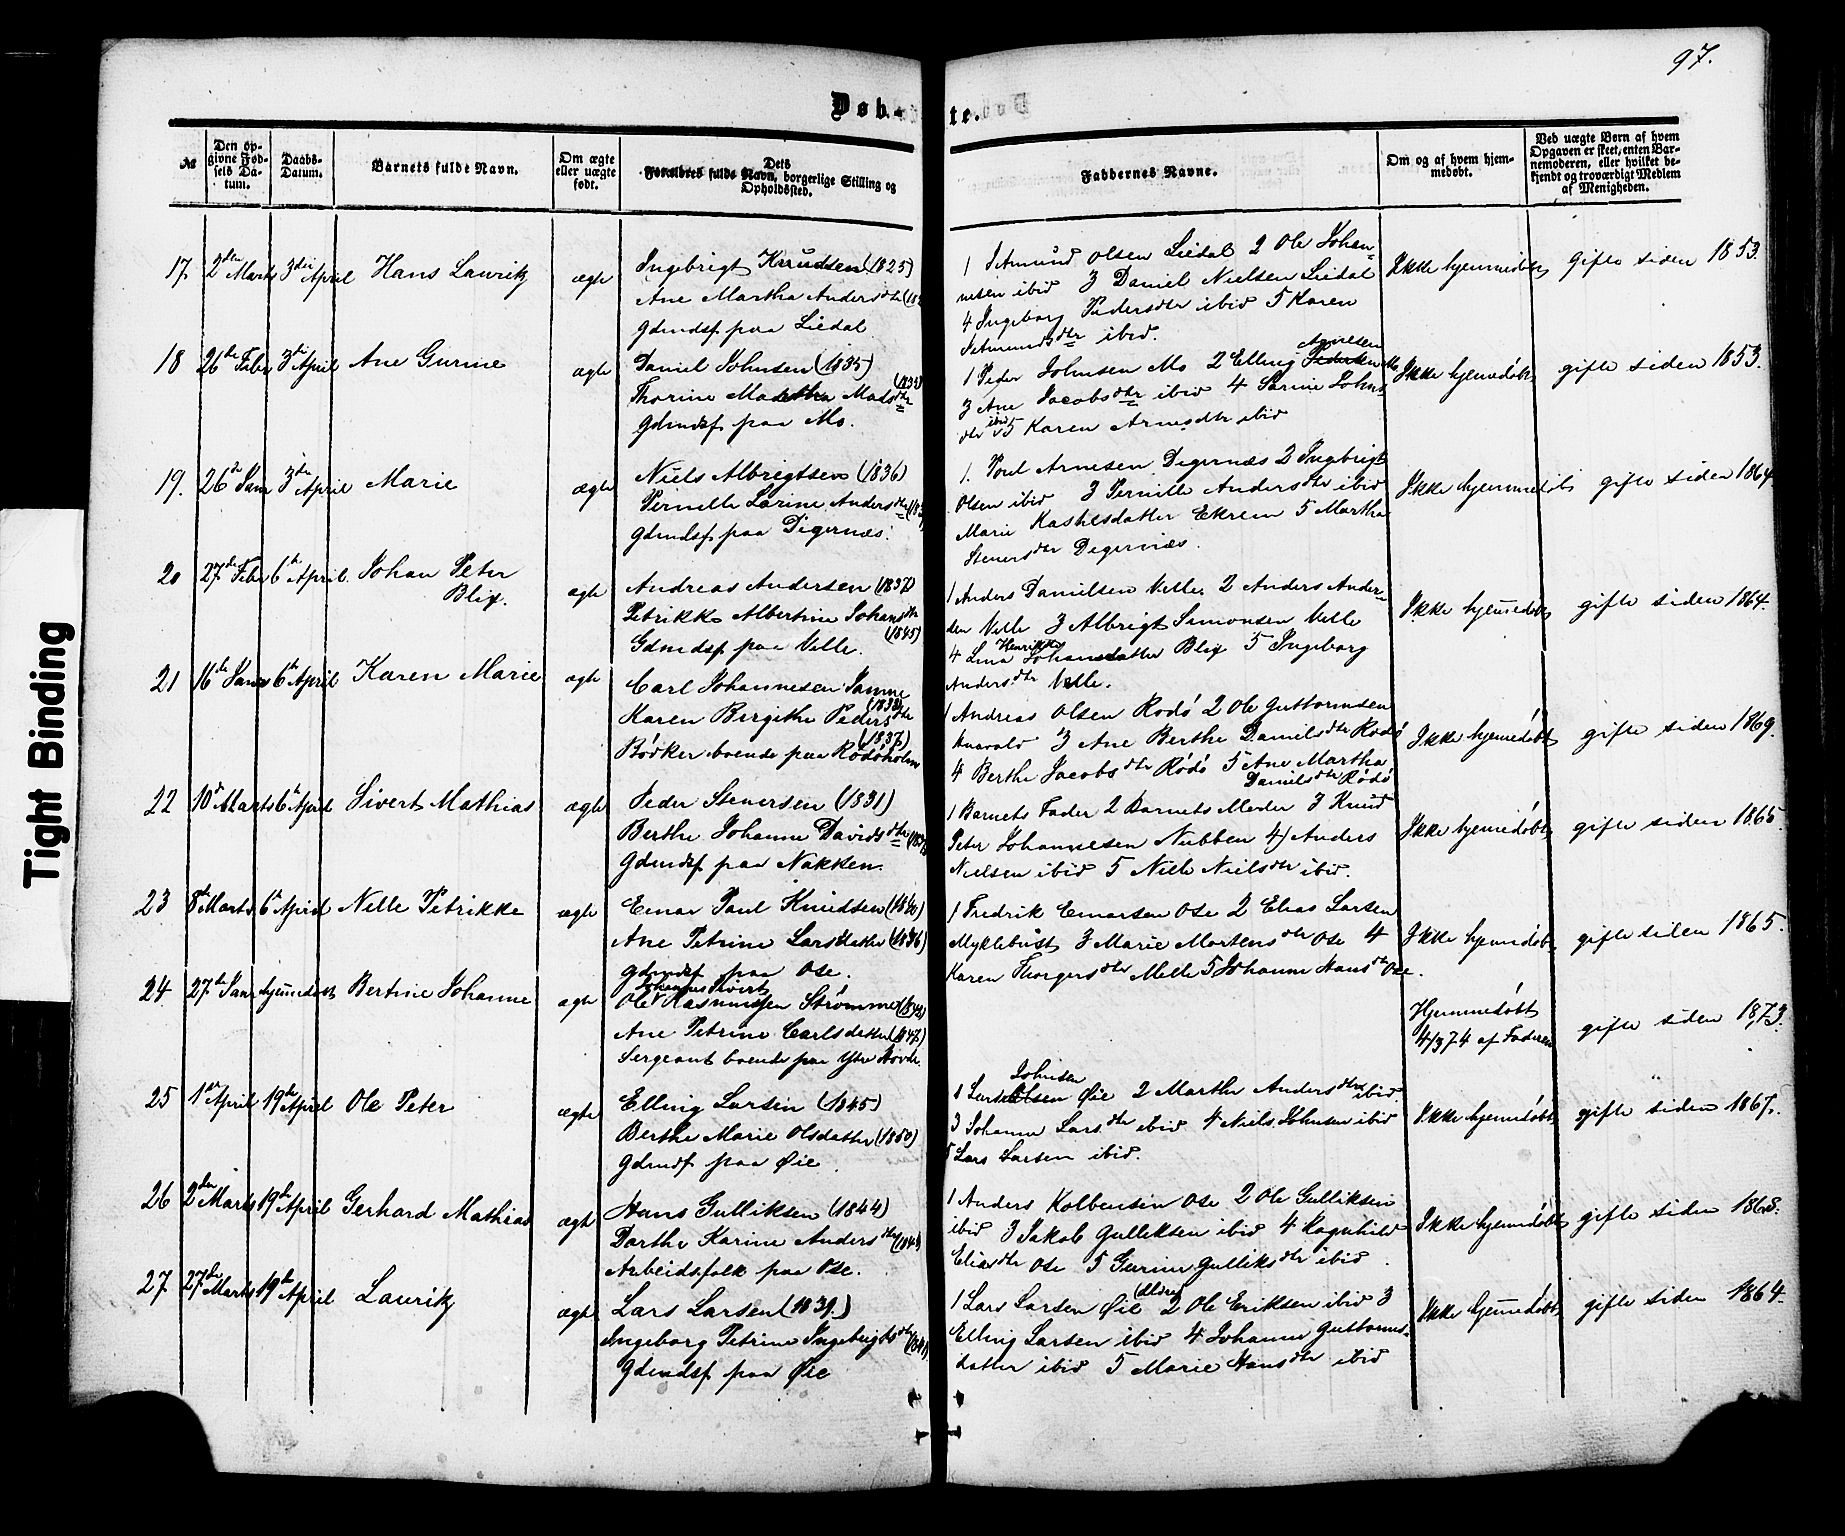 97.
Døb- te.
№
Den opgivne Fødsels Datum.
Daabs-Datum.
Barnets fulde Navn.
Om ægte eller uægte født.
Dets Forældres fulde Navn, borgerlige Stilling og Opholdssted.
Faddernes Navne.
Om og af hvem hjemmedøbt.
Ved uægte Børn af hvem Opgaven er skeet, enten Barnemoderen, eller hvilket bekjendt og troværdigt Medlem af Menigheden.
17. 2den Marts 3die April Hans Lauritz ægte
Ingebrigt Knudsen (1825)
Ane Martha Andersdtr
Gdmdsf paa Liedal
1 Setmund Olsen Liedal 2 Ole Johan-
nesen ibid 3 Daniel Nielsen Liedal
4 Ingeborg Pedersdtr ibid 5 Karen
Setmundsdtr ibid.
Ikke hjemmedøbt gifte siden 1853.
18 26de Febr 3die April Ane Gurine ægte
Daniel Johnsen (1835)
Thorine Martha Madsdtr
Gdmdsf paa Mo.
Arnesen
1 Peder Johnsen Mo 2 Elling Pedersen Mo
3 Ane Jacobsdtr ibid 4 Sarine Johns-
dtr ibid 5 Karen Arnesdtr ibid
Ikke hjemmedøbt gifte siden 1853.
19. 26de Janr 3die April Marie ægte
Niels Albrigtsen (1836)
Pernelle Larine Andersdtr
Gdmdsf paa Digernæs.
1. Poul Arnesen Digernæs 2 Ingbrigt
Olsen ibid 3 Pernille Andersdtr ibid
Marie Kastesdatter Ekrem 5 Martha
Stenersdtr Digernæs.
Ikke hjemmedøbt gifte siden 1864
20 27de Febr 6te April. Johan Peter
Blix. ægte
Andreas Andersen (1837)
Petrikke Albertine Johansdtr
(1845)
Gdmdsf paa Velle.
1 Anders Danielsen Velle 2 Anders Ander-
sen Velle 3 Albrigt Simonsen Velle
4 Lina Henrikke Johansdatter Blix 5 Ingeborg
Andersdtr Velle.
Ikke hjemmedøbt gifte siden 1864.
21 16de Janr 6te April Karen Marie ægte
Carl Johannesen Samme
Karen Birgithe Pedersdtr
(1837)
Bødker boende paa Rødøholm
1 Andreas Olsen Rødø 2 Ole Guttormsen
3 Ane Berthe Danielsdtr Rødø
4 Berthe Jacobsdtr Rødø 5 Ane Martha
Danielsdtr Rødø
Ikke hjemmedøbt gifte siden 1869.
22 10de Marts 6te April Sivert Mathias ægte
Peder Stenersen (1831)
Berthe Johanne Davidsdtr
Gdmdsf paa Nakken.
1 Barnets Fader 2 Barnets Moder 3 Knud
Peter Johannesen Nubben 4) Anders
Nielsen ibid 5 Nille Nielsdtr ibid.
Ikke hjemmedøbt gifte siden 1865.
23 8de Marts 6te April Nelle Petrikke ægte
Einar Paul Knudsen (1840)
Ane Petrine Larsdatter (1836)
Gdmdsf paa Ose.
1 Fredrik Einarsen Ose 2 Elias Larsen
Myklebust 3 Marie Mortensdtr Ose 4
Karen Thorgersdtr Melle 5 Johanne Hansdtr Ose.
Ikke hjemmedøbt gifte siden 1865.
24 27de Janr hjemmedøbt Bertine Johanne ægte
Johannes Sivert
Ole Rasmussen Strømme (1842)
Ane Petrine Carlsdatter (1847)
Sergeant boende paa Ytre Hovde
Hjemmedøbt
4/3 74 af Faderen gifte siden 1873.
25 1ste April 19de April Ole Peter ægte
Elling Larsen (1845)
Berthe Marie Olsdatter (1850)
Gdmdf paa Øie.
Johnsen
1 Lars Olsen Øie 2 Marthe Andersdtr ibid.
3 Johanne Larsdtr ibid 4 Niels Johnsen ibid
5 Lars Larsen ibid.
Ikke hjemmedøbt gifte siden 1867.
26 2den Marts 19de April Gerhard Mathias ægte
Hans Gulliksen (1844)
Dorthe Karine Andersdtr
Arbeidsfolk paa Ose.
1 Anders Kolbensen Ose 2 Ole Gulliksen
ibid 3 Jakob Gulliksen ibid 4 Ragnhild
Eliasdtr Ose 5 Gurine Gulliksdtr ibid.
Ikke hjemmedøbt gifte siden 1868.
27. 27de Marts 19de April Lauritz ægte
Lars Larsen (1839.)
Ingeborg Petrine Ingebrigtsdtr
Gdmdsf paa Øie
1 Lars Larsen Øie (Eldre) 2 Ole Eriksen ibid 3
Elling Larsen ibid 4 Johanne Guttorms-
datter ibid 5 Marie Hansdtr ibid
Ikke hjemmedøbt gifte siden 1864.
Tight Binding